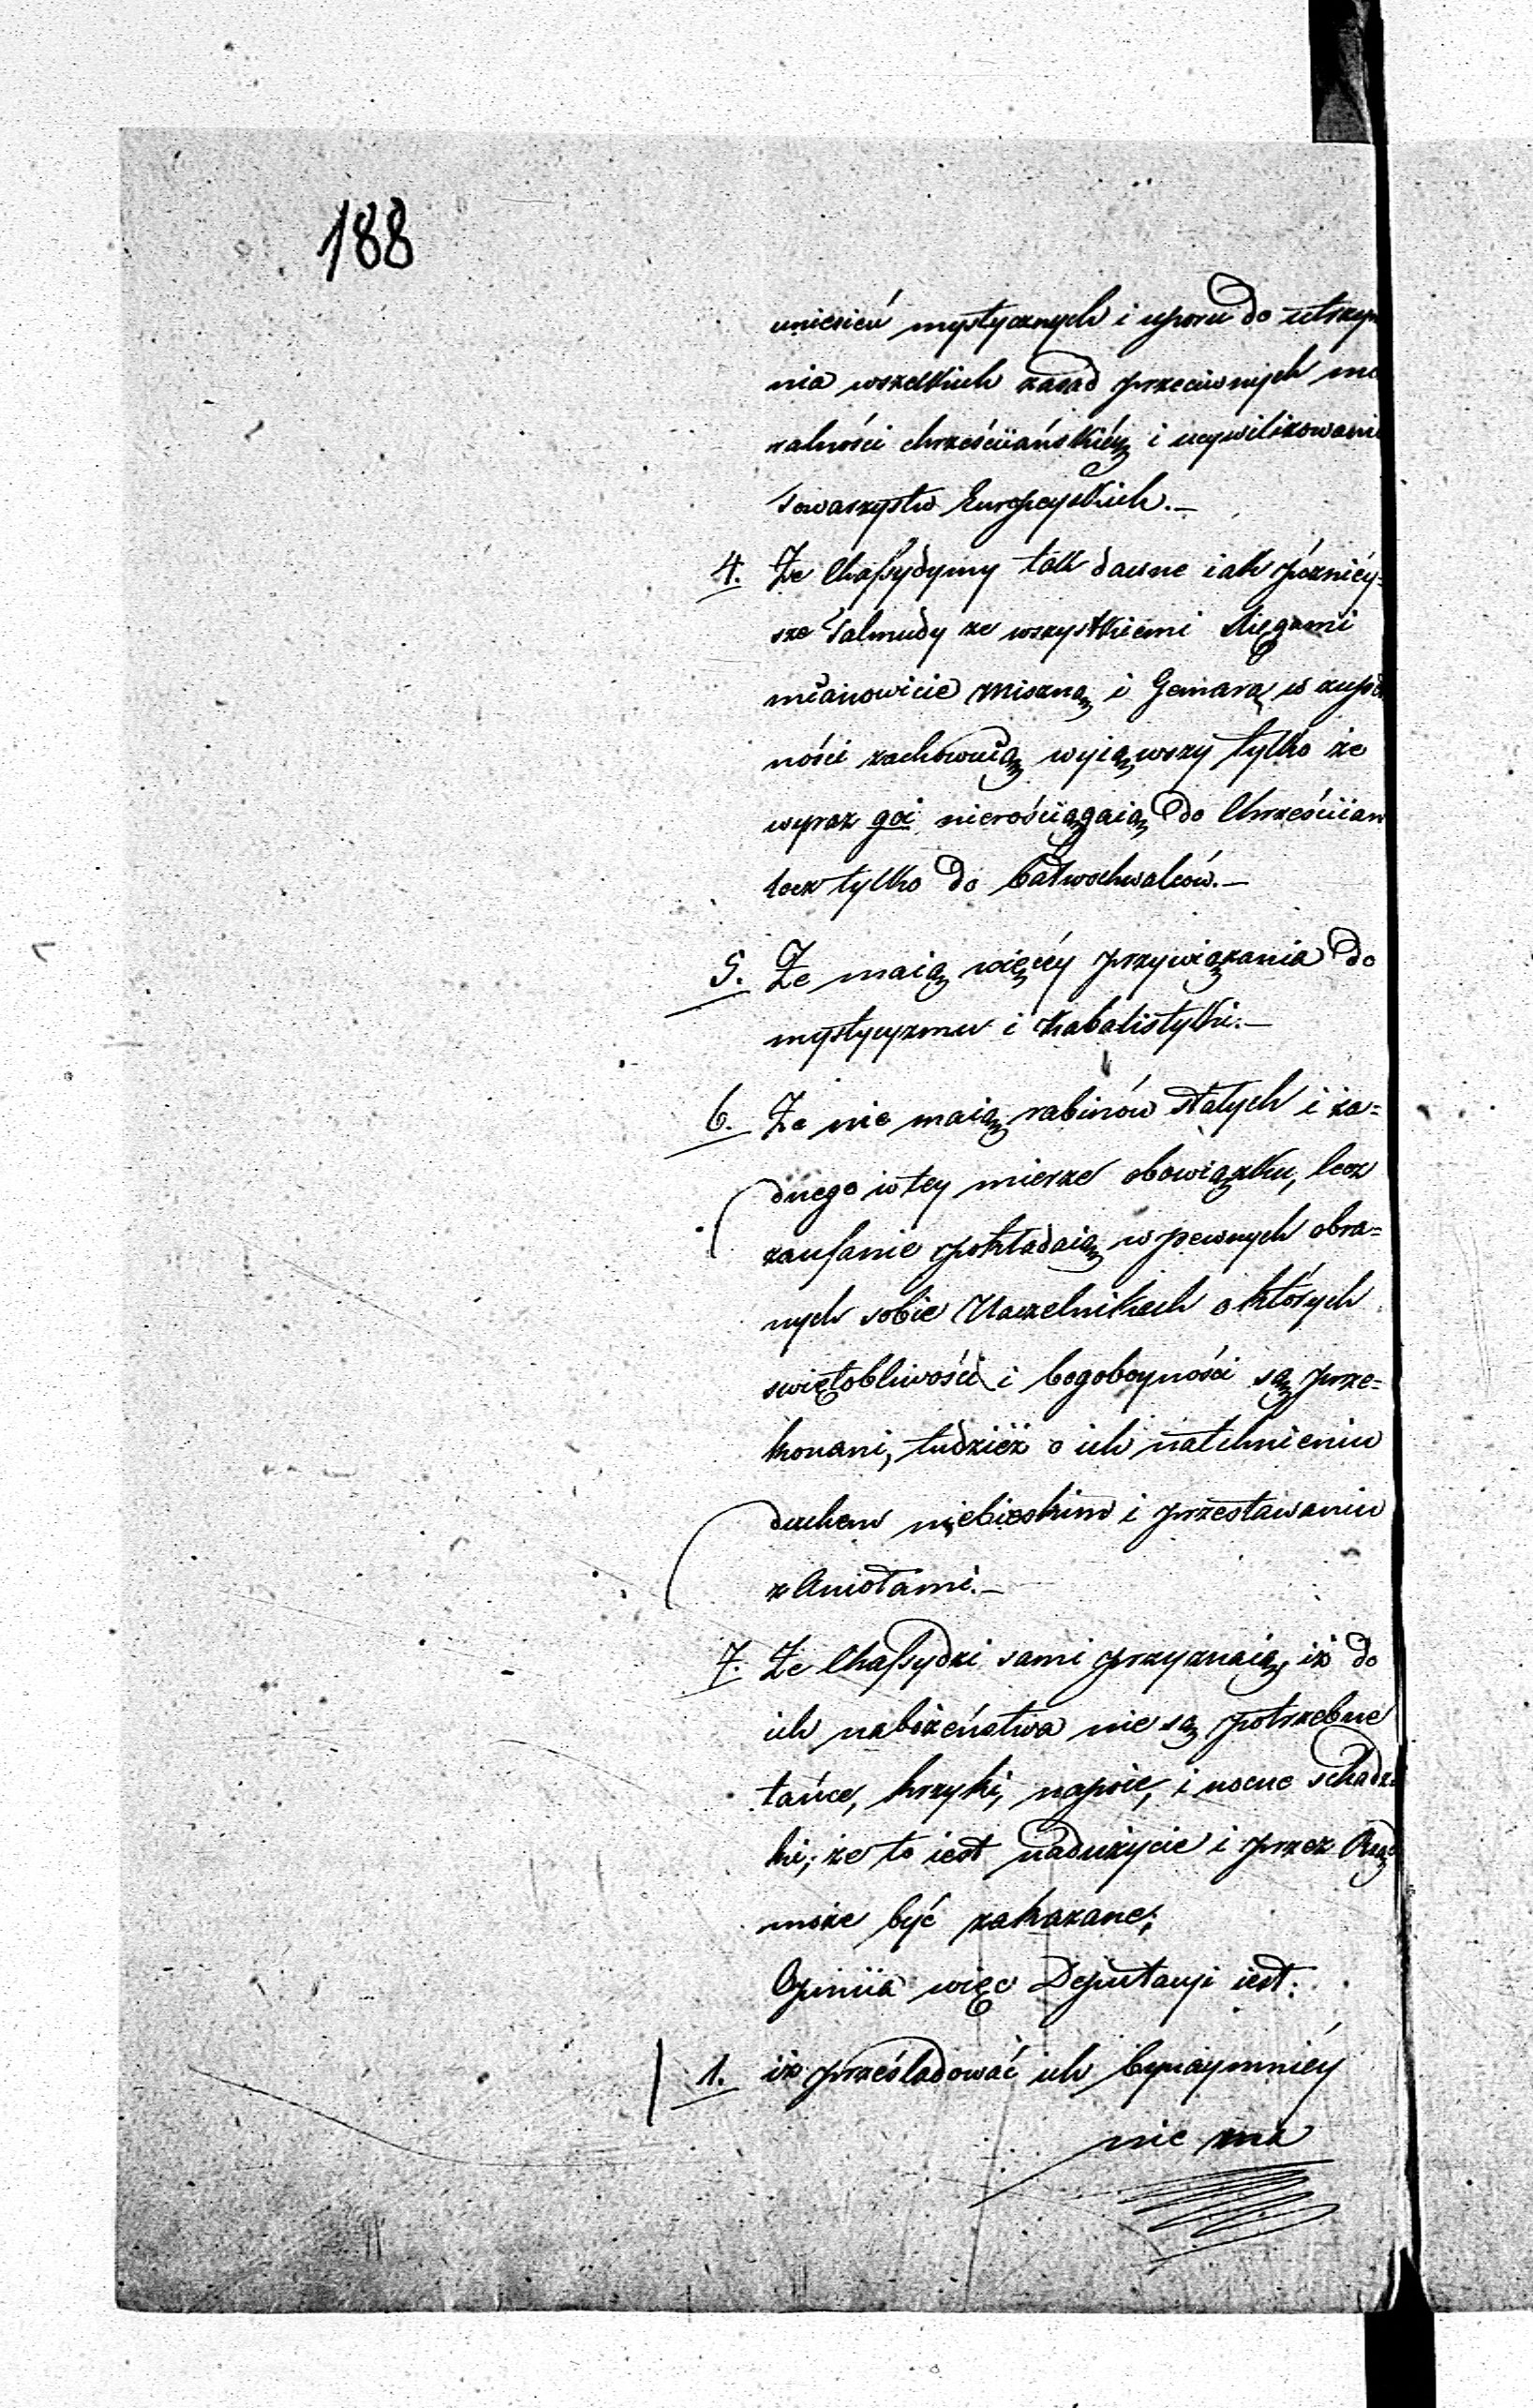 188
uniesień mystycznych i uporu do utrzym
nia wszelkich zasad przeciwnych mo
ralności chrześciiańskiéy i ucywilizowani
Towarzystw Europeyskich.—
4. Że Chassydymy tak dawne iak późniéy=
sze Talmudy ze wszystkiemi Księgami
mianowicie Miszną i Gemarą w zupeł
ności zachowuią wyiąwszy tylko że
wyraz goi nierościągaią do Chrześciian
lecz tylko do bałwochwalców.—
5. Że maią więcéy przywiązania do
mystycyzmu i Kabalistyki.—
6. Że nie maią rabinów stałych i ża=
dnego w tey mierze obowiązku, lecz
zaufanie pokładaią w pewnych obra=
nych sobie Naczelnikach o których
swiętobliwości i bogoboyności są prze=
konani, tudzież o ich natchnieniu
duchem niebieskim i przestawaniu
z Aniołami.—
7. Że Chassydzi sami przyznaią, iż do
ich nabożeństwa nie są potrzebne
tańce, krzyki, napoie, i nocne schadz
ki; że to iest nadużycie i przez Rząd
może być zakazane;
Opiniia więc Deputacyi iest:
1. iż prześladować ich bynaymniéy
nie ma